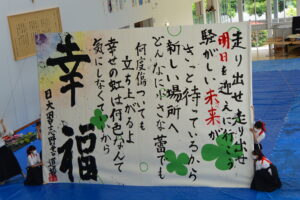 走り出せ 走り出せ
明日を迎えに行こう
騒がしい未来が
きっと待っているから
新しい場所へ
どんなに小さな蕾でも
何度傷ついても
立ち上がるよ
幸せの虹は何色なんて
気にしなくていいから
幸福